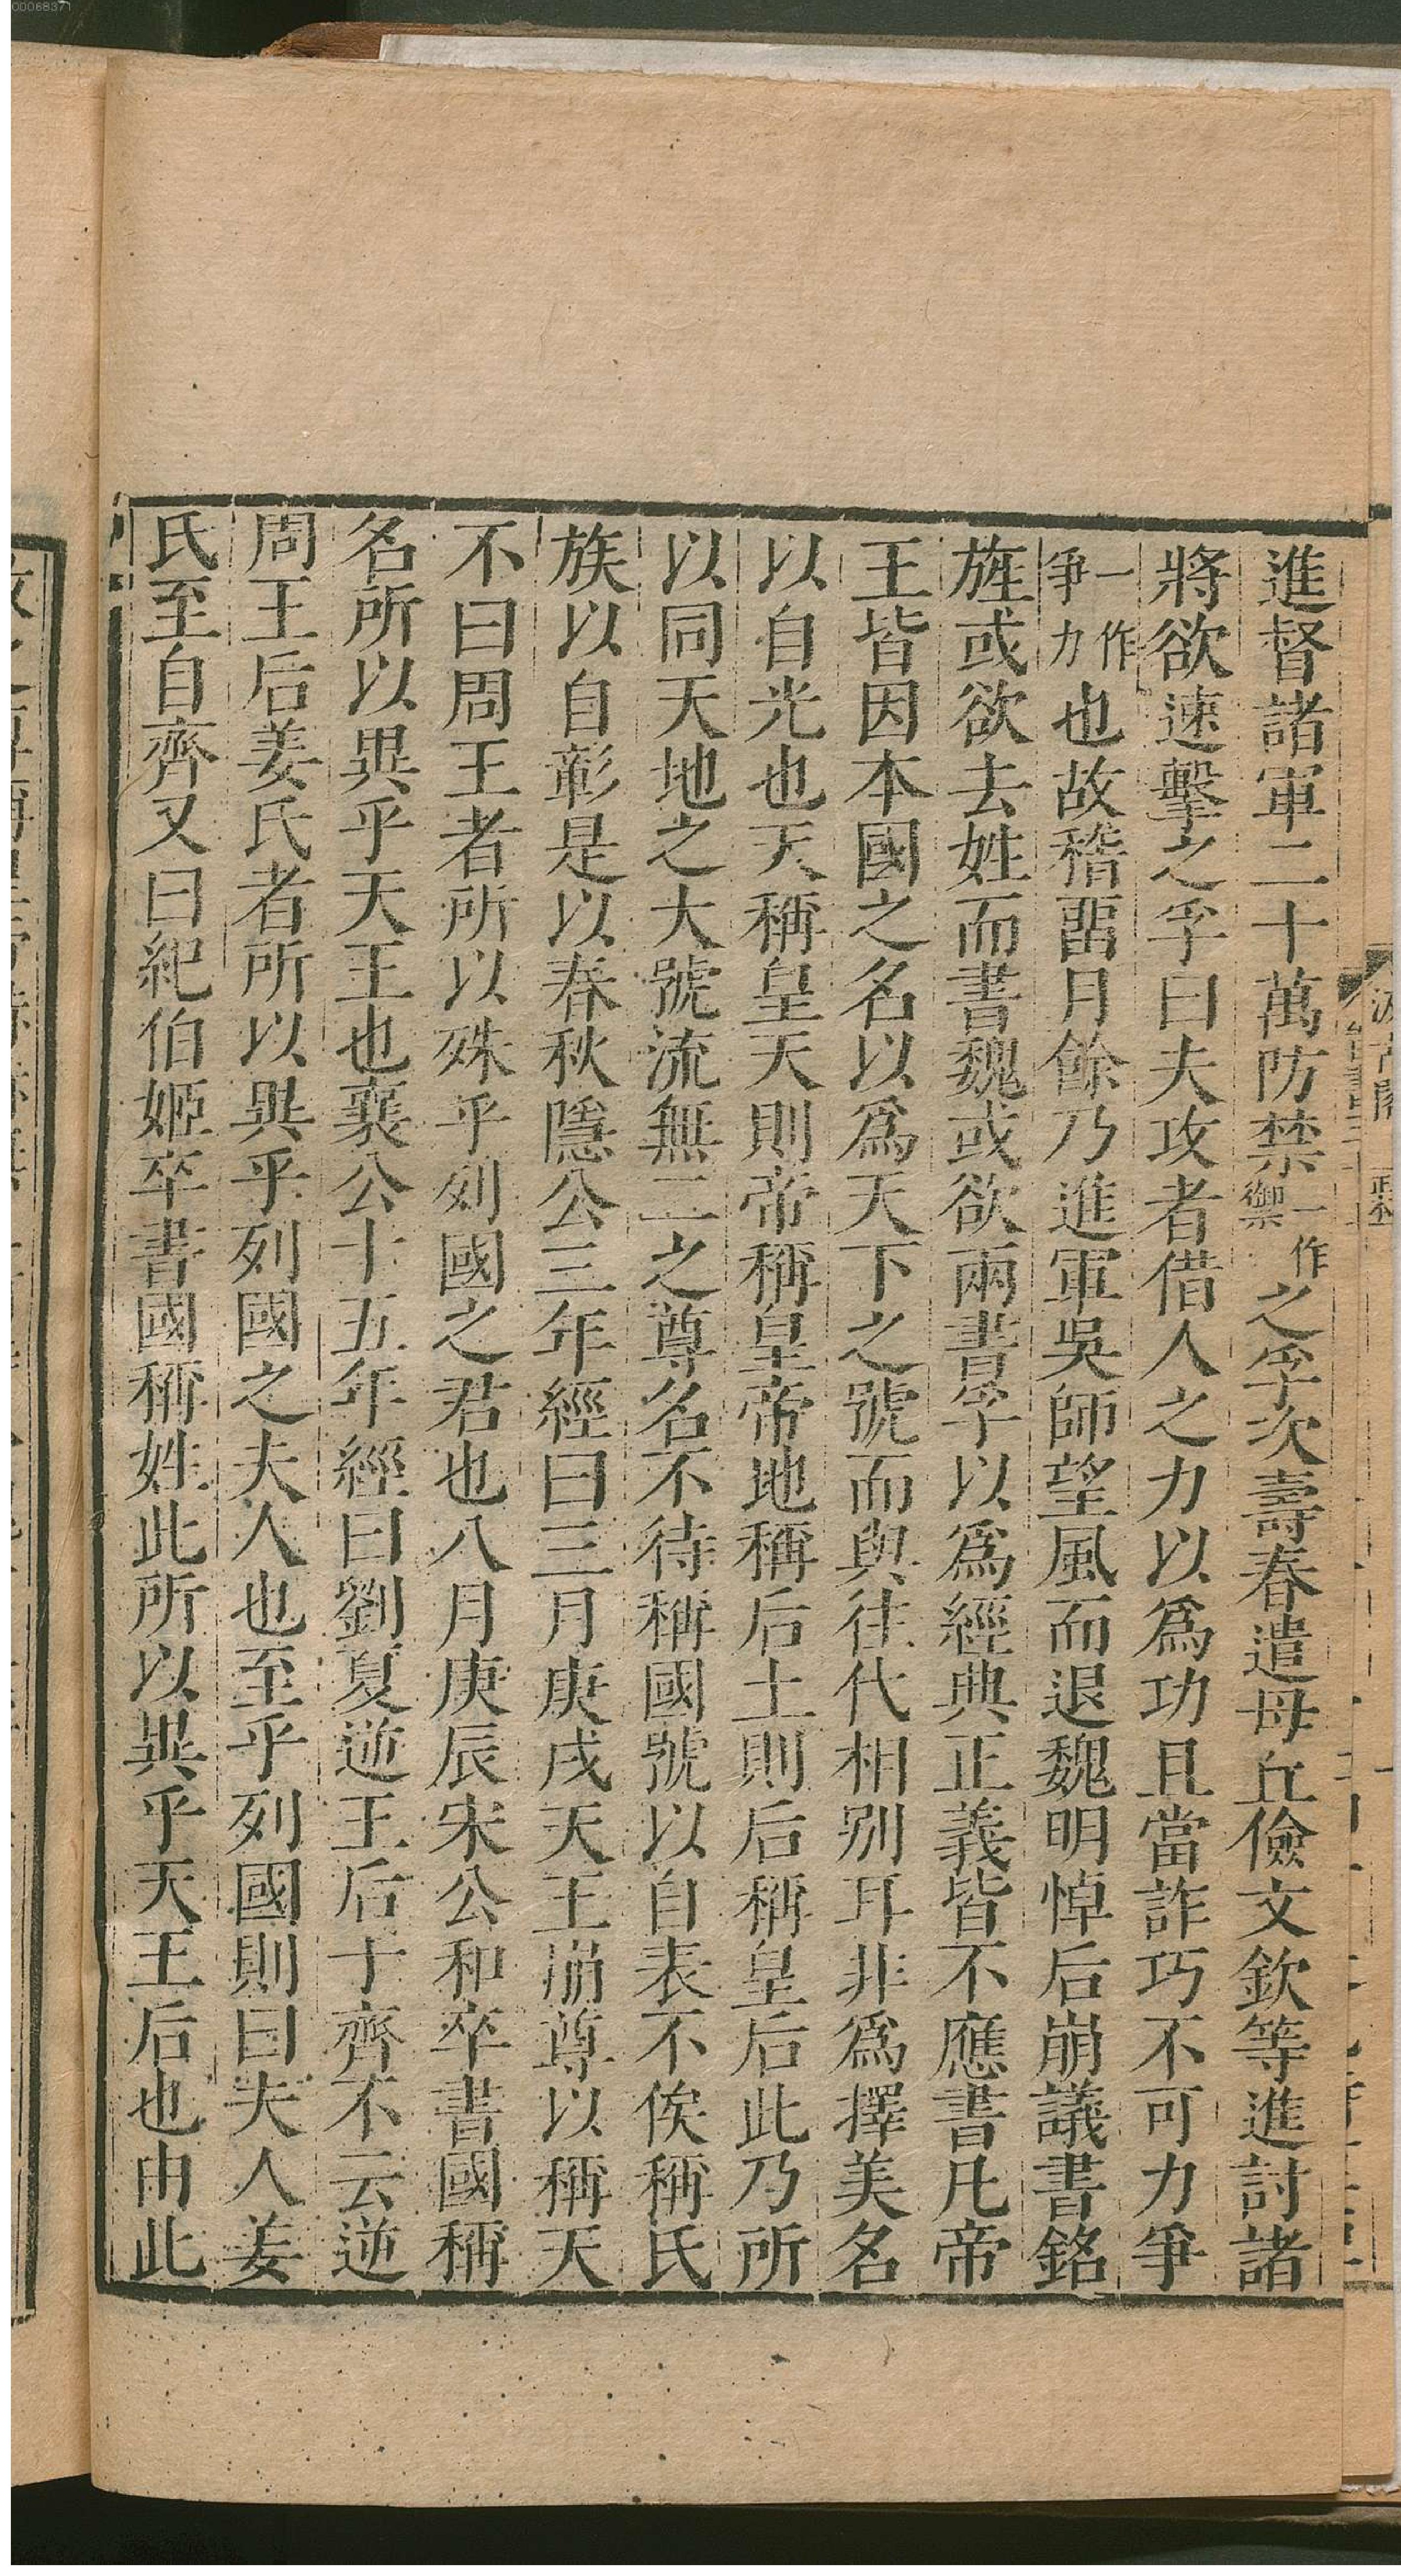 00068371
進督諸軍二十萬防禁一作禦之孚次壽春遣母丘儉文欽等進討諸
將欲速擊之孚曰夫攻者借人之力以爲功且當詐巧不可力爭
一作爭力也故稽畱月餘乃進軍吳師望風而退魏明悼后崩議書銘
旌或欲去姓而書魏或欲兩書孚以爲經典正義皆不應書凡帝
王皆因本國之名以爲天下之號而與往代相别耳非爲擇美名
以自光也天稱皇天則帝稱皇帝地稱后土則后稱皇后此乃所
以同天地之大號流無二之尊名不待稱國號以自表不俟稱氏
族以自彰是以春秋隱公三年經曰三月庚戌天王崩尊以稱天
不曰周王者所以殊乎列國之君也八月庚辰宋公和卒書國稱
名所以異乎天王也襄公十五年經曰劉夏逆王后于齊不云逆
周王后姜氏者所以異乎列國之夫人也至乎列國則曰夫人姜
氏至自齊又曰紀伯姬卒書國稱姓此所以異乎天王后也由此